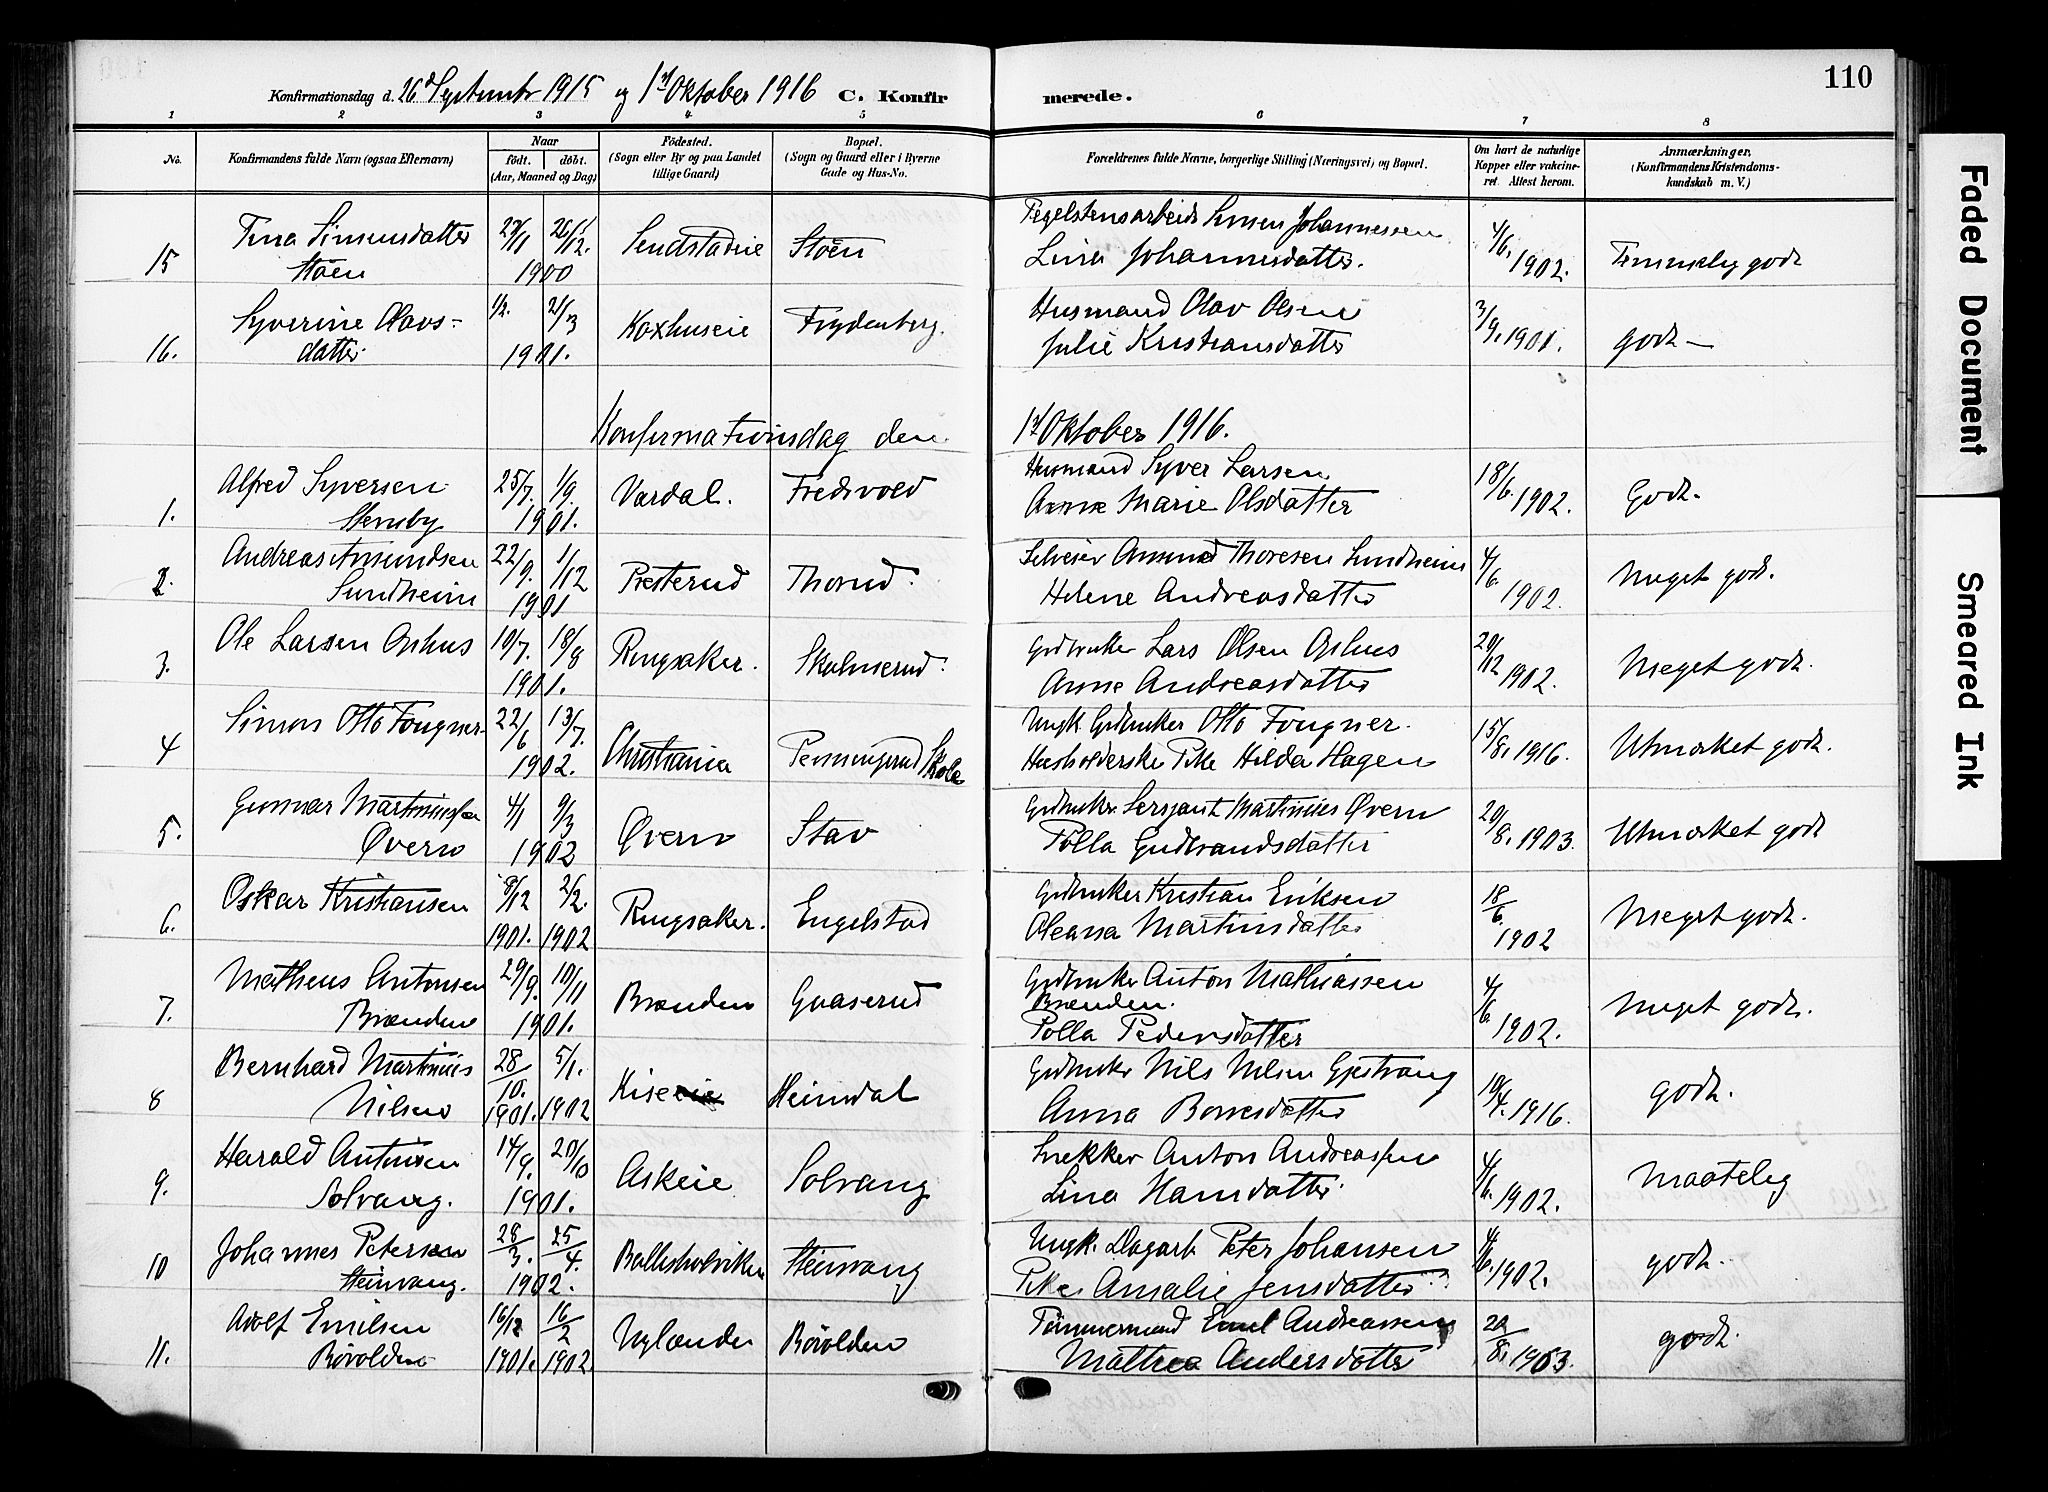 110
Konfirmationsdag d. 26d September 1915 og 1st Oktober 1916 C. Konfirmerede.
1 2 3 4 5 6 7 8
No. Konfirmandens fulde Navn (ogsaa Efternavn) Naar født. døbt. (Aar, Maaned og Dag) Fødested. (Sogn eller By og paa Landet tillige Gaard) Bopæl. (Sogn og Gaard eller i Byerne Gade og Hus-No. Forældrenes fulde Navne, borgerlige Stilling (Næringsvei) og Bopæl. Om havt de naturlige Kopper eller vakcineret. Attest herom. Anmærkninger. (Konfirmandens Kristendomskundskab m. V.)
15 Tina Simensdatter 29/11 26/12. Sendstadeie Støen Tegelstensarbeid. Simen Johannessen 4/6. 1902. Temmelig godt
Støen 1900 Lina Johannesdatter.
16. Syverine Olavs- 1/2. 21/3 Koxhuseie Frydenberg. Husmand Olav Olsen 3/9. 1901. godt
datter. 1901. Julie Kristiansdatter
Konfirmationsdag den 1st Oktober 1916.
1. Alfred Syversen 25/7. 1/9. Vardal. Fredsvold Husmand Syver Larsen 18/6. 1902. Godt.
Stensby 1901. Anne Marie Olsdatter
2. Andreas Amundsen 22/9. 1/12 Presterud Thorud. Selveier Amund Thoresen Sundheim 4/6. 1902. Meget godt.
Sundheim 1901 Helene Andreasdatter
3. Ole Larsen Ophus 10/7. 18/8 Ringsaker. Skolmerud. Grdbruker Lars Olsen Ophus 20/12 1902. Meget godt.
1901. Anne Andreasdatter
4 Simon Otto Fougner 22/6 13/7. Christiania Penningrud Skole Ungk. Grdbruker Otto Fougner. 15/8. 1916. Utmærket godt.
1902. Husholderske Pike Hilda Hagen
5. Gunnar Martiniussen 4/1 9/3 Øvern Stav Grdbruker. Sersjant Martinius Øvern 20/8. 1903. Utmærket godt
Øvern 1902 Tolla Gudbrandsdatter
6. Oskar Kristiansen 8/12 2/2. Ringsaker. Engelstad Grdbruker Kristian Eriksen 18/6. 1902 Meget godt.
1901. 1902 Oleana Martinsdatter
7. Matheus Antonsen 29/9. 10/11 Brænden Gaaserud Grdbruker Anton Mathiassen 4/6. 1902. Meget godt.
Brænden 1901. Brænden.
Tolla Pedersdatter
8 Bernhard Martinius 28/10. 5/1. Kise Heimdal Grdbruker Nils Nilsen Gjestvang 10/4. 1916. godt.
Nilsen 1901. 1902 Anna Borresdatter
9. Harald Antonsen 14/9. 20/10 Askeie Solvang Snekker Anton Andreassen 4/6. 1902. Maatelig
Solvang. 1901. Lina Hansdatter.
10 Johannes Petersen 28/3. 25/4. Balleshulviken Steinvang Ungk. Dagarb. Peter Johansen 4/6. 1902. godt.
Steinvang. 1902. Pike Amalie Jensdatter
11. Adolf Emilsen 16/12 16/2 Nylænde Børolden Tømmermand Emil Andreassen 20/8. 1903. godt.
Børolden 1901. 1902 Mathea Andersdatter
Faded Document
Smeared Ink